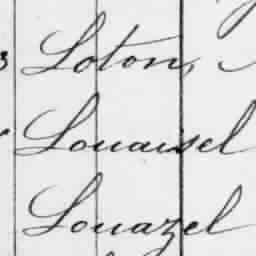 Loton,
Louaisel
Louazel